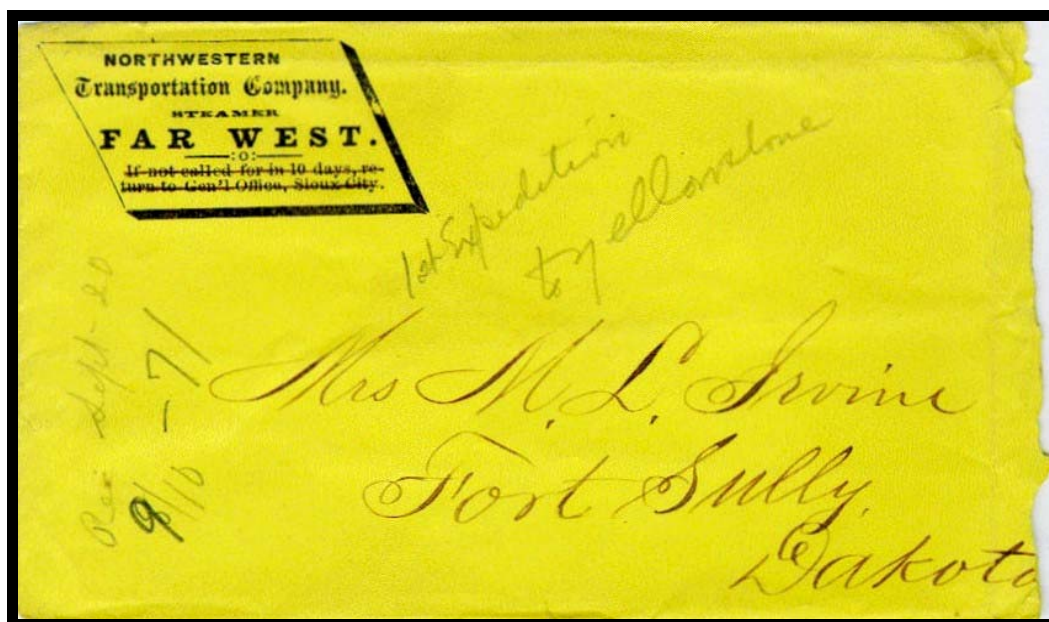 NORTHWESTERN
Transportation Company.
STEAMER
FAR WEST.
:o:
If not called for in 10 days, re-
turn to Gen'l Office, Sioux City.
1st Expedition
to Yellowstone
Mrs M. L. Irvine
Fort Sully,
Dakota
Rec Sept 20
9/10 -71